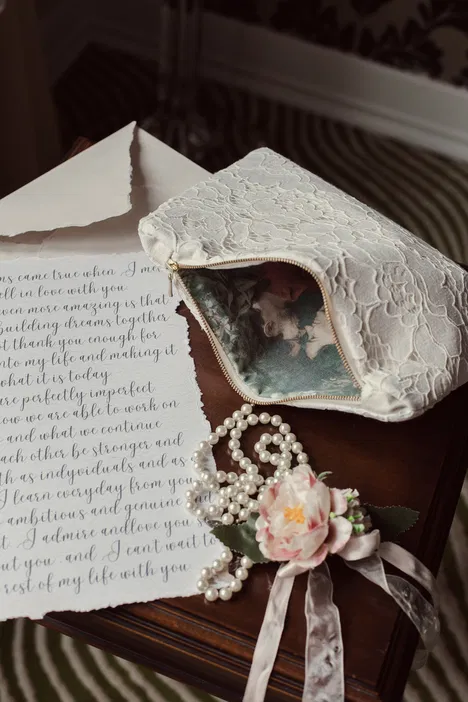 ms came true when I me
ell in love with you
even more amazing is that
building dreams together
t thank you enough for
nto my life and making it
what it is today
are perfectly imperfect
ow we are able to work on
and what we continue
each other be stronger and
th as individuals and as
I learn everyday from you
ambitious and genuine
t. I admire andlove you
out you and I can't wait t
rest of my life with you